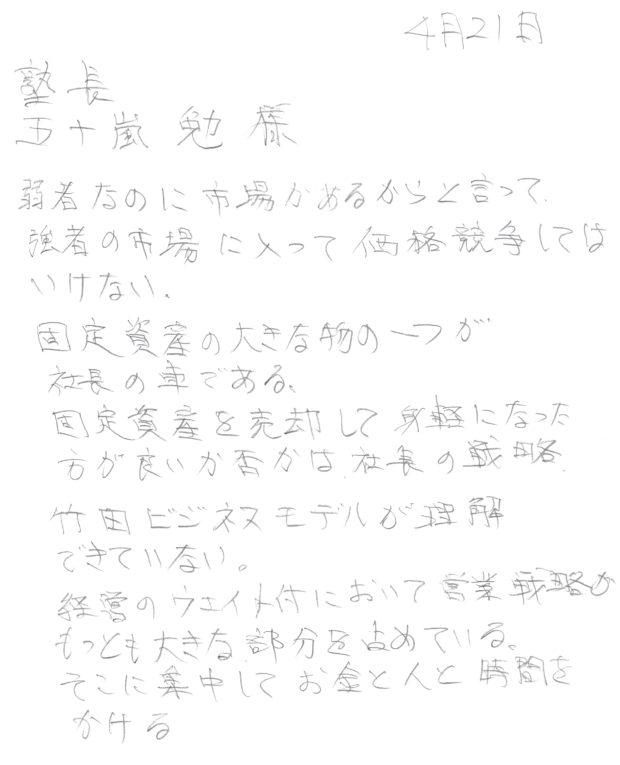 4月21日
塾長
五十嵐 勉 様
弱者なのに市場があるからと言って、
強者の市場に入って価格競争しては
いけない。
固定資産の大きな物の一つが
社長の車である。
固定資産を売却して身軽になった
方が良いか否かは社長の戦略
竹田ビジネスモデルが理解
できていない。
経営のウェイト付において営業戦略が
もっとも大きな部分を占めている。
そこに集中してお金と人と時間を
かける